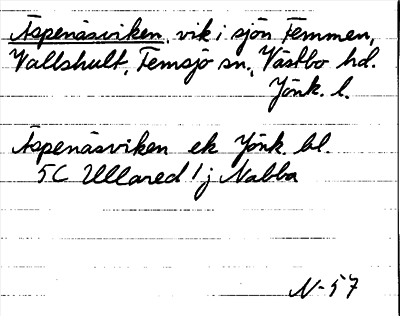 Aspenäsviken, vik i sjön Femmen,
Vallshult, Femsjö sn, Västbo hd.
Jönk. l.
Aspenäsviken ek Jönk. bl.
5C Ullared 1j Nabba
N-57